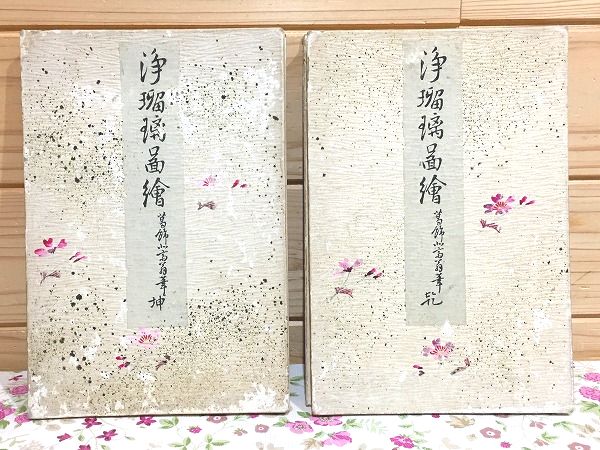 浄瑠璃圖繪 葛飾北斎翁筆 乾
浄瑠璃圖繪 葛飾北斎翁筆 坤